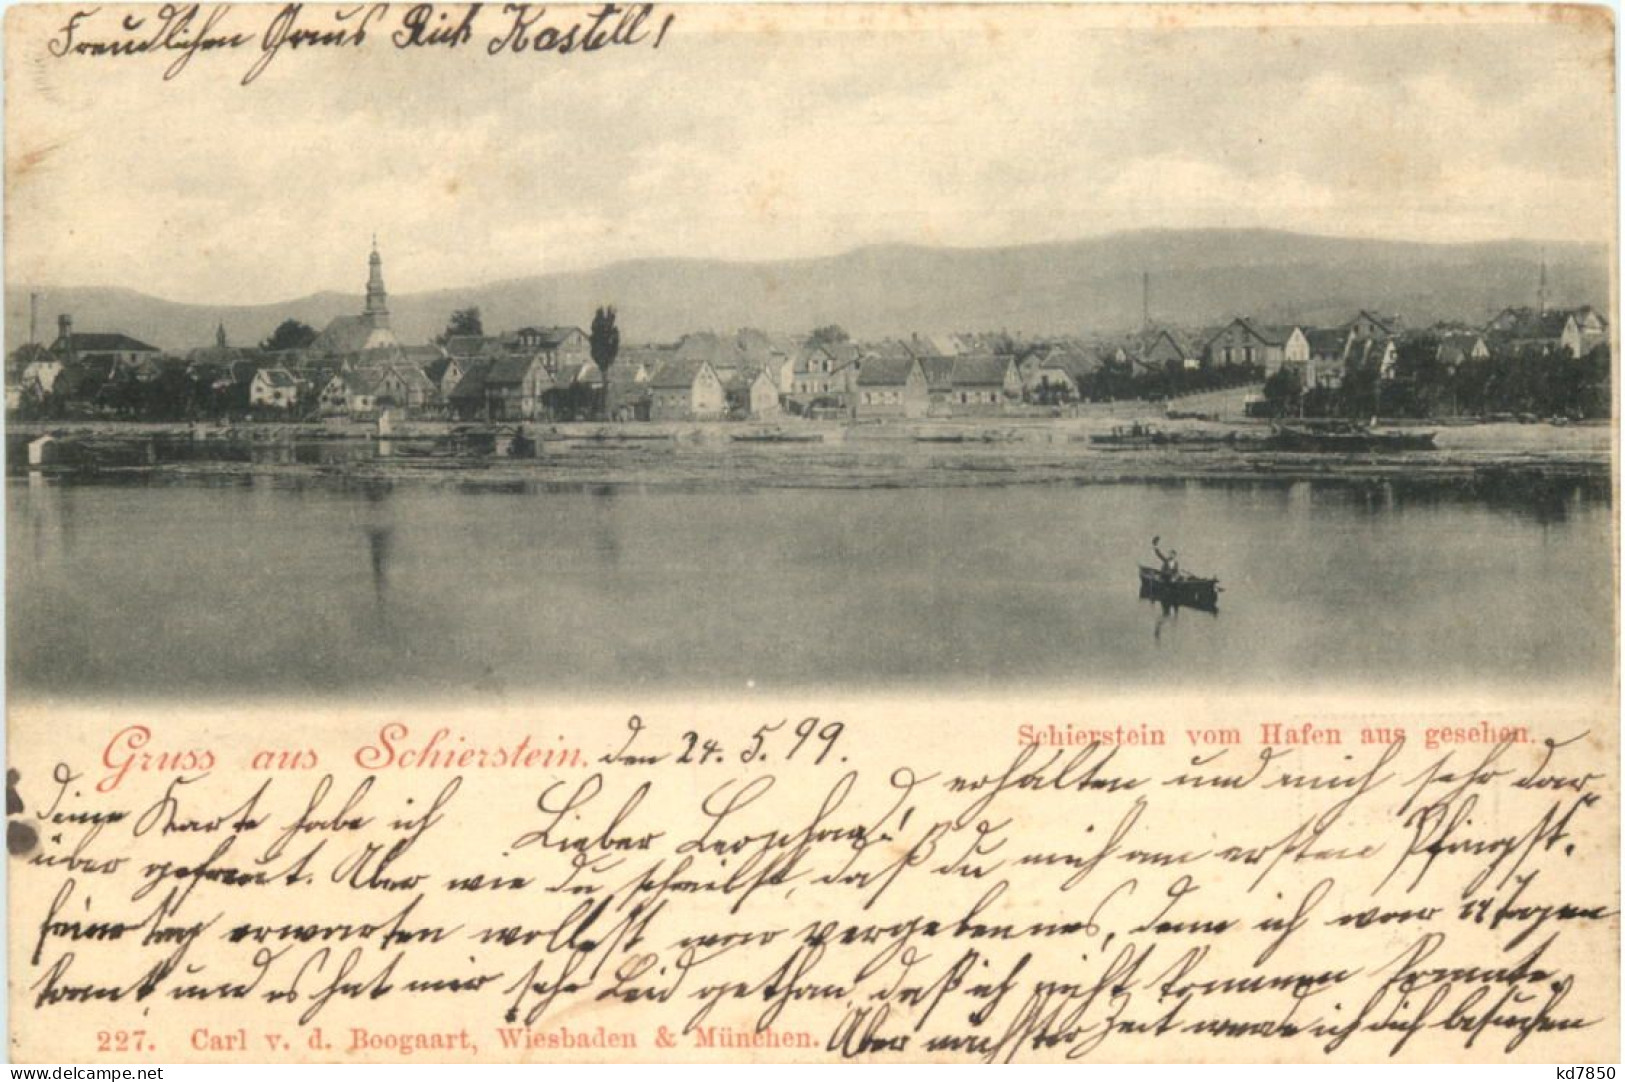 Freundlichen Gruss Rich Kastell!
Gruss aus Schierstein. den 24. 5. 99.
Schierstein vom Hafen aus gesehen.
Lieber !
deine Karte habe ich erhalten und mich sehr dar,
über gefreut. Aber wie du schreibst, daß du mich am ersten Pfingst,
feiertag erwarten wolltest, war vergebennes, denn ich war 14 Tagen
krank und es hat mir sehr Leid gethan, daß ich nicht kommen konnte.
Aber nächster Zeit werde ich dich besuchen
227. Carl v. d. Boogaart, Wiesbaden & München.
kd7850